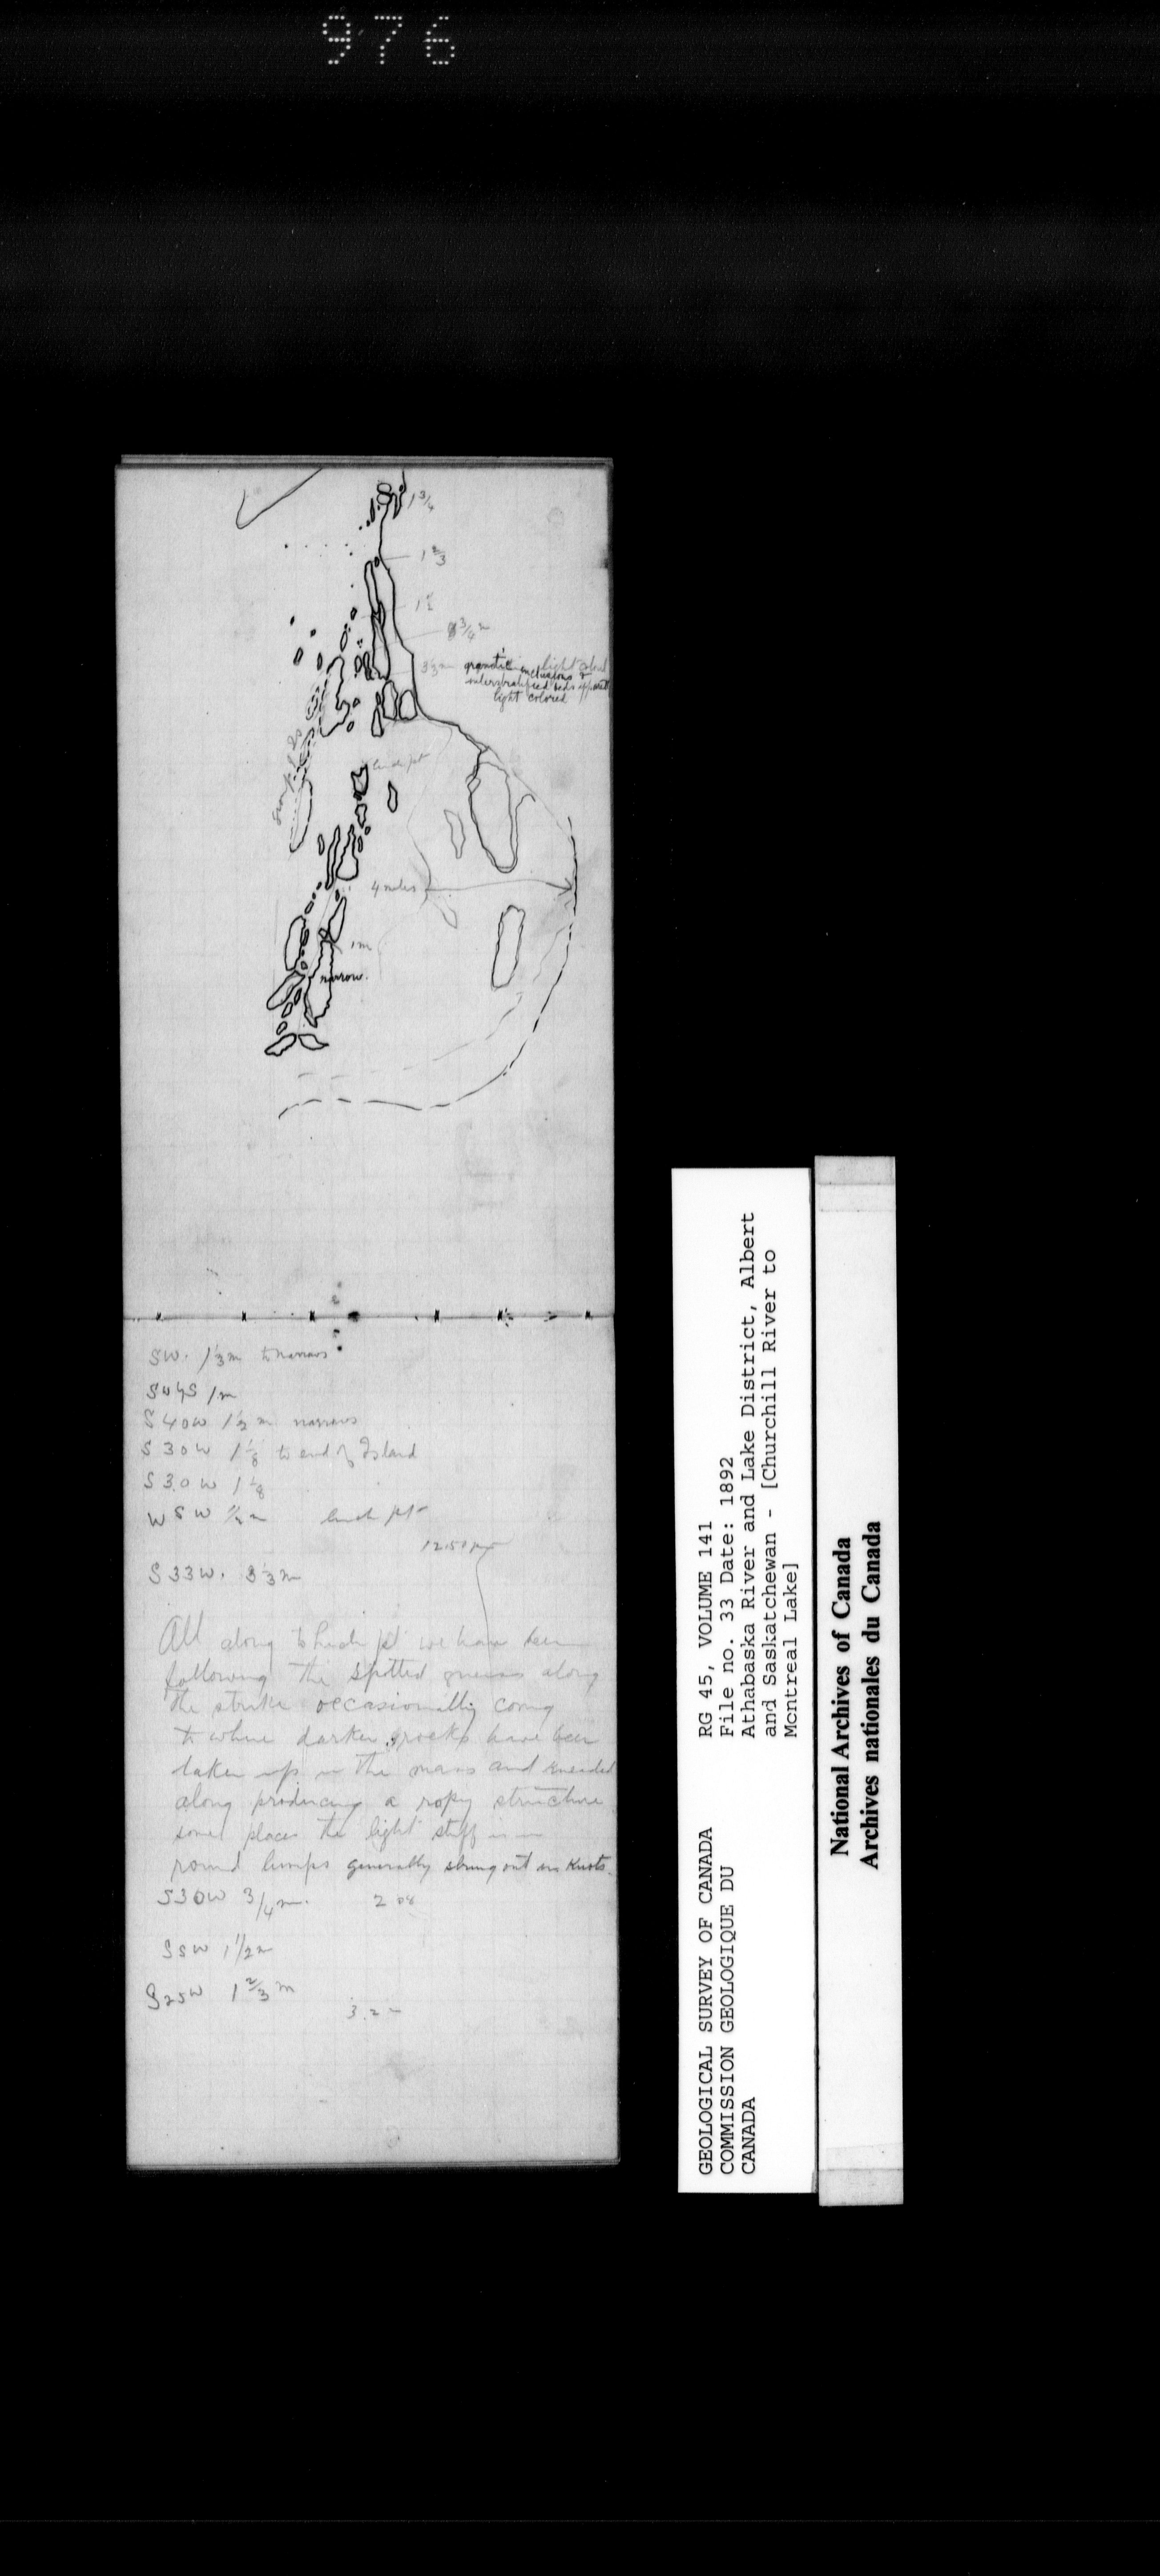 976
1 3/4
1 2/3
1 1/2
3/4 m
3 1/3 m
granitic light colored
inclusions &
interstratified beds apparently
light colored
lunch pt
4 miles
1 m
narrow.
SW. 1 1/3 m to narrows
SWbyS 1 m
S 40 W 1 1/2 m narrows
S 30 W 1 1/8 to end of Island
S 30 W 1 1/8
W S W 1/2 m lunch pt
12.50 pm
S 33 W. 3 1/3 m
All along to lunch pt we have been
following the spotted gneiss along
the strike occasionally coming
to where darker rocks have been
taken up in the mass and kneaded
along producing a ropy structure
some places the light stuff is in
round lumps generally strung out as knots.
S30W 3/4 m. 2 08
SSW 1 1/2 m
S25W 1 2/3 m
3.2
GEOLOGICAL SURVEY OF CANADA
COMMISSION GEOLOGIQUE DU
CANADA
RG 45, VOLUME 141
File no. 33 Date: 1892
Athabaska River and Lake District, Albert
and Saskatchewan - [Churchill River to
Montreal Lake]
National Archives of Canada
Archives nationales du Canada